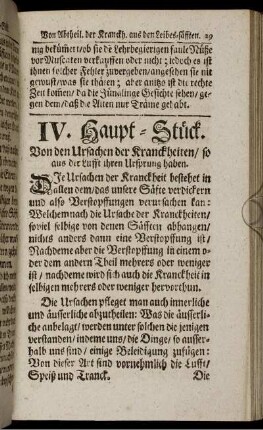 Von Abtheil. der Kranckh. aus den Leibes-säfften. 29
nig bekümert/ob sie dē Lehrbegierigen faule Nüsse
vor Muscaten verkauffen oder nicht; jedoch es ist
ihnen solcher Fehler zuvergeben/angesehen sie nit
gewust/was sie thäten; aber anitzo ist die rechte
Zeit kom̃en/da die Jünglinge Gesichte sehen/gegen
dem/daß die Alten nur Träume gehabt.
IV. Haupt-Stück.
Von den Ursachen der Kranckheiten/so
aus der Lufft ihren Ursprung haben.
DIe Ursachen der Kranckheit bestehet in
allen dem/das unsere Säfte verdickern
und also Verstopffungen verursachen kan:
Welchem nach die Ursache der Kranckheiten/
soviel selbige von denen Säfften abhangen/
nichts anders dann eine Verstopffung ist/
Nachdeme aber die Verstopffung in einem o-
der dem andern Theil mehrers oder weniger
ist/nachdeme wird sich auch die Kranckheit in
selbigen mehrers oder weniger hervorthun.
Die Ursachen pfleget man auch innerliche
und äusserliche abzutheilen: Was die äusserli-
che anbelagt/werden unter solchen die jenigen
verstanden/indeme uns/die Dinge/so ausser-
halb uns sind/einige Beleidigung zufügen:
Von dieser Art sind vornehmlich die Lufft/
Speiß und Tranck. Die